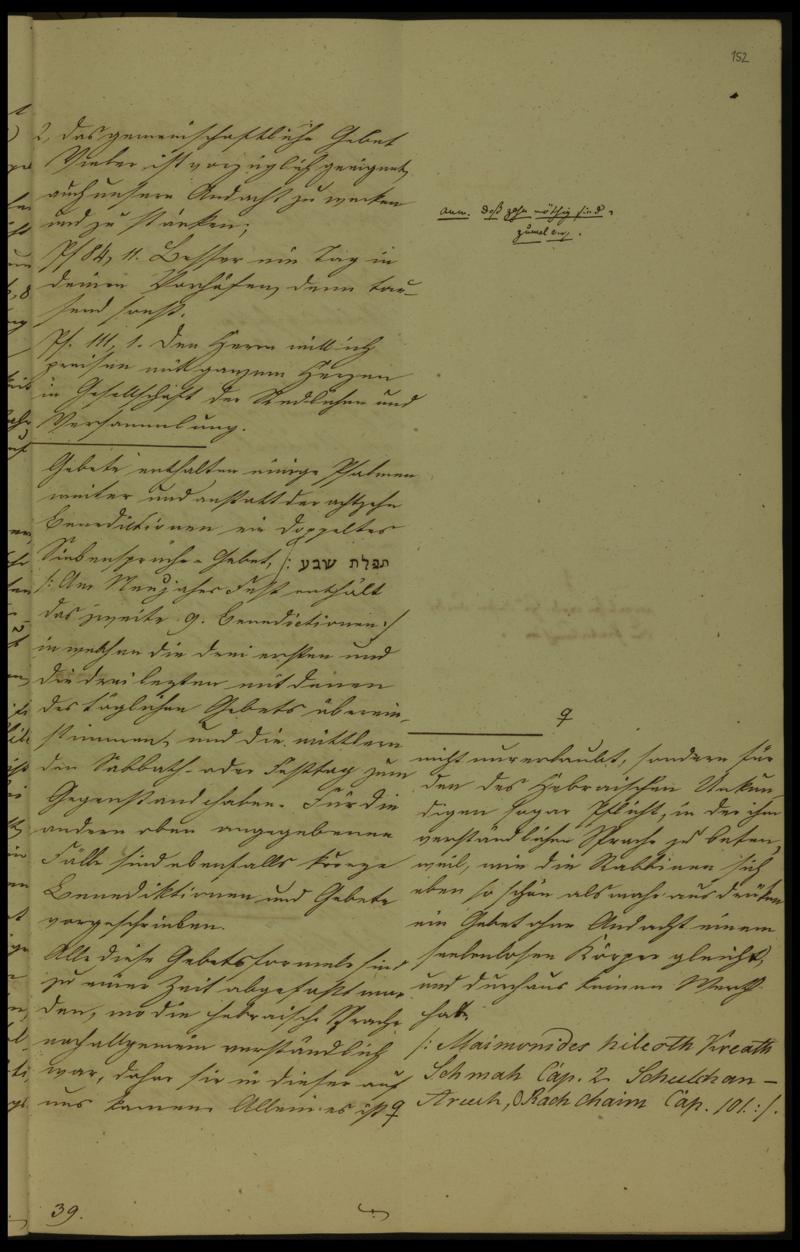 152
2, das gemeinschaftliche Gebet
Vieler ist vorzüglich geeignet,
auch unsere Andacht zu wecken
und zu stärken;
Ps 84, 11. Besser ein Tag in
deinen Vorhöfen, denn tau-
send sonst.
Ps. 111, 1. Den Herrn will ich
preisen mit ganzem Herzen
in Gesellschaft der Redlichen und
Versammlung.
Anm. daß zehn nöthig sind
Gebete enthalten einige Psalmen
weiter und anstatt der achtzehn
Benedictionen ein doppeltes
Siebensprüche-Gebet, /: תפלת שבע
/: Am Neujahrs Fest enthält
das zweite 9. Benedictionen :/
in welchen die drei ersten und
die drei lezten mit denen
des täglichen Gebets überein-
stimmen, und die mittlern
den Sabbath- oder Festtag zum
Gegenstand haben. Für die
andern oben angegebenen
Fälle sind ebenfalls kurze
Benediktionen und Gebete
vorgeschrieben.
Alle diese Gebetsformeln sind
zu einer Zeit abgefaßt wor-
den, wo die hebräische Sprache
noch allgemein verständlich
war, daher sie in dieser auf
uns kamen. Allein es ist
nicht nur erlaubt, sondern für
den des Hebräischen Unkun-
digen sogar Pflicht, in der ihm
verständlichen Sprache zu beten,
weil, wie die Rabbinen sich
eben so schön als wahr ausdrüken
ein Gebet ohne Andacht einem
seelenlosen Körper gleicht,
und durchaus keinen Werth
hat.
/: Maimonides hilcoth Kreath
Schmah Cap. 2. Schulchan-
Aruch, Orach chaim Cap. 101. :/.
39.